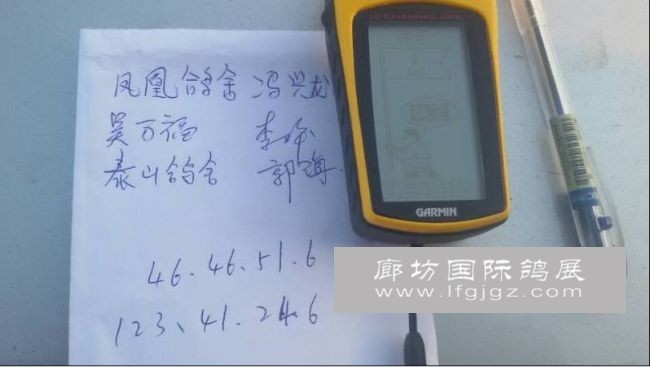 12 CHANNEL GPS
凤凰鸽舍 冯兴龙
吴万福 李
泰山鸽舍 郭海
GARMIN
46.46.51.6
123、41.24.6
廊坊国际鸽展
www.lfgjgz.com